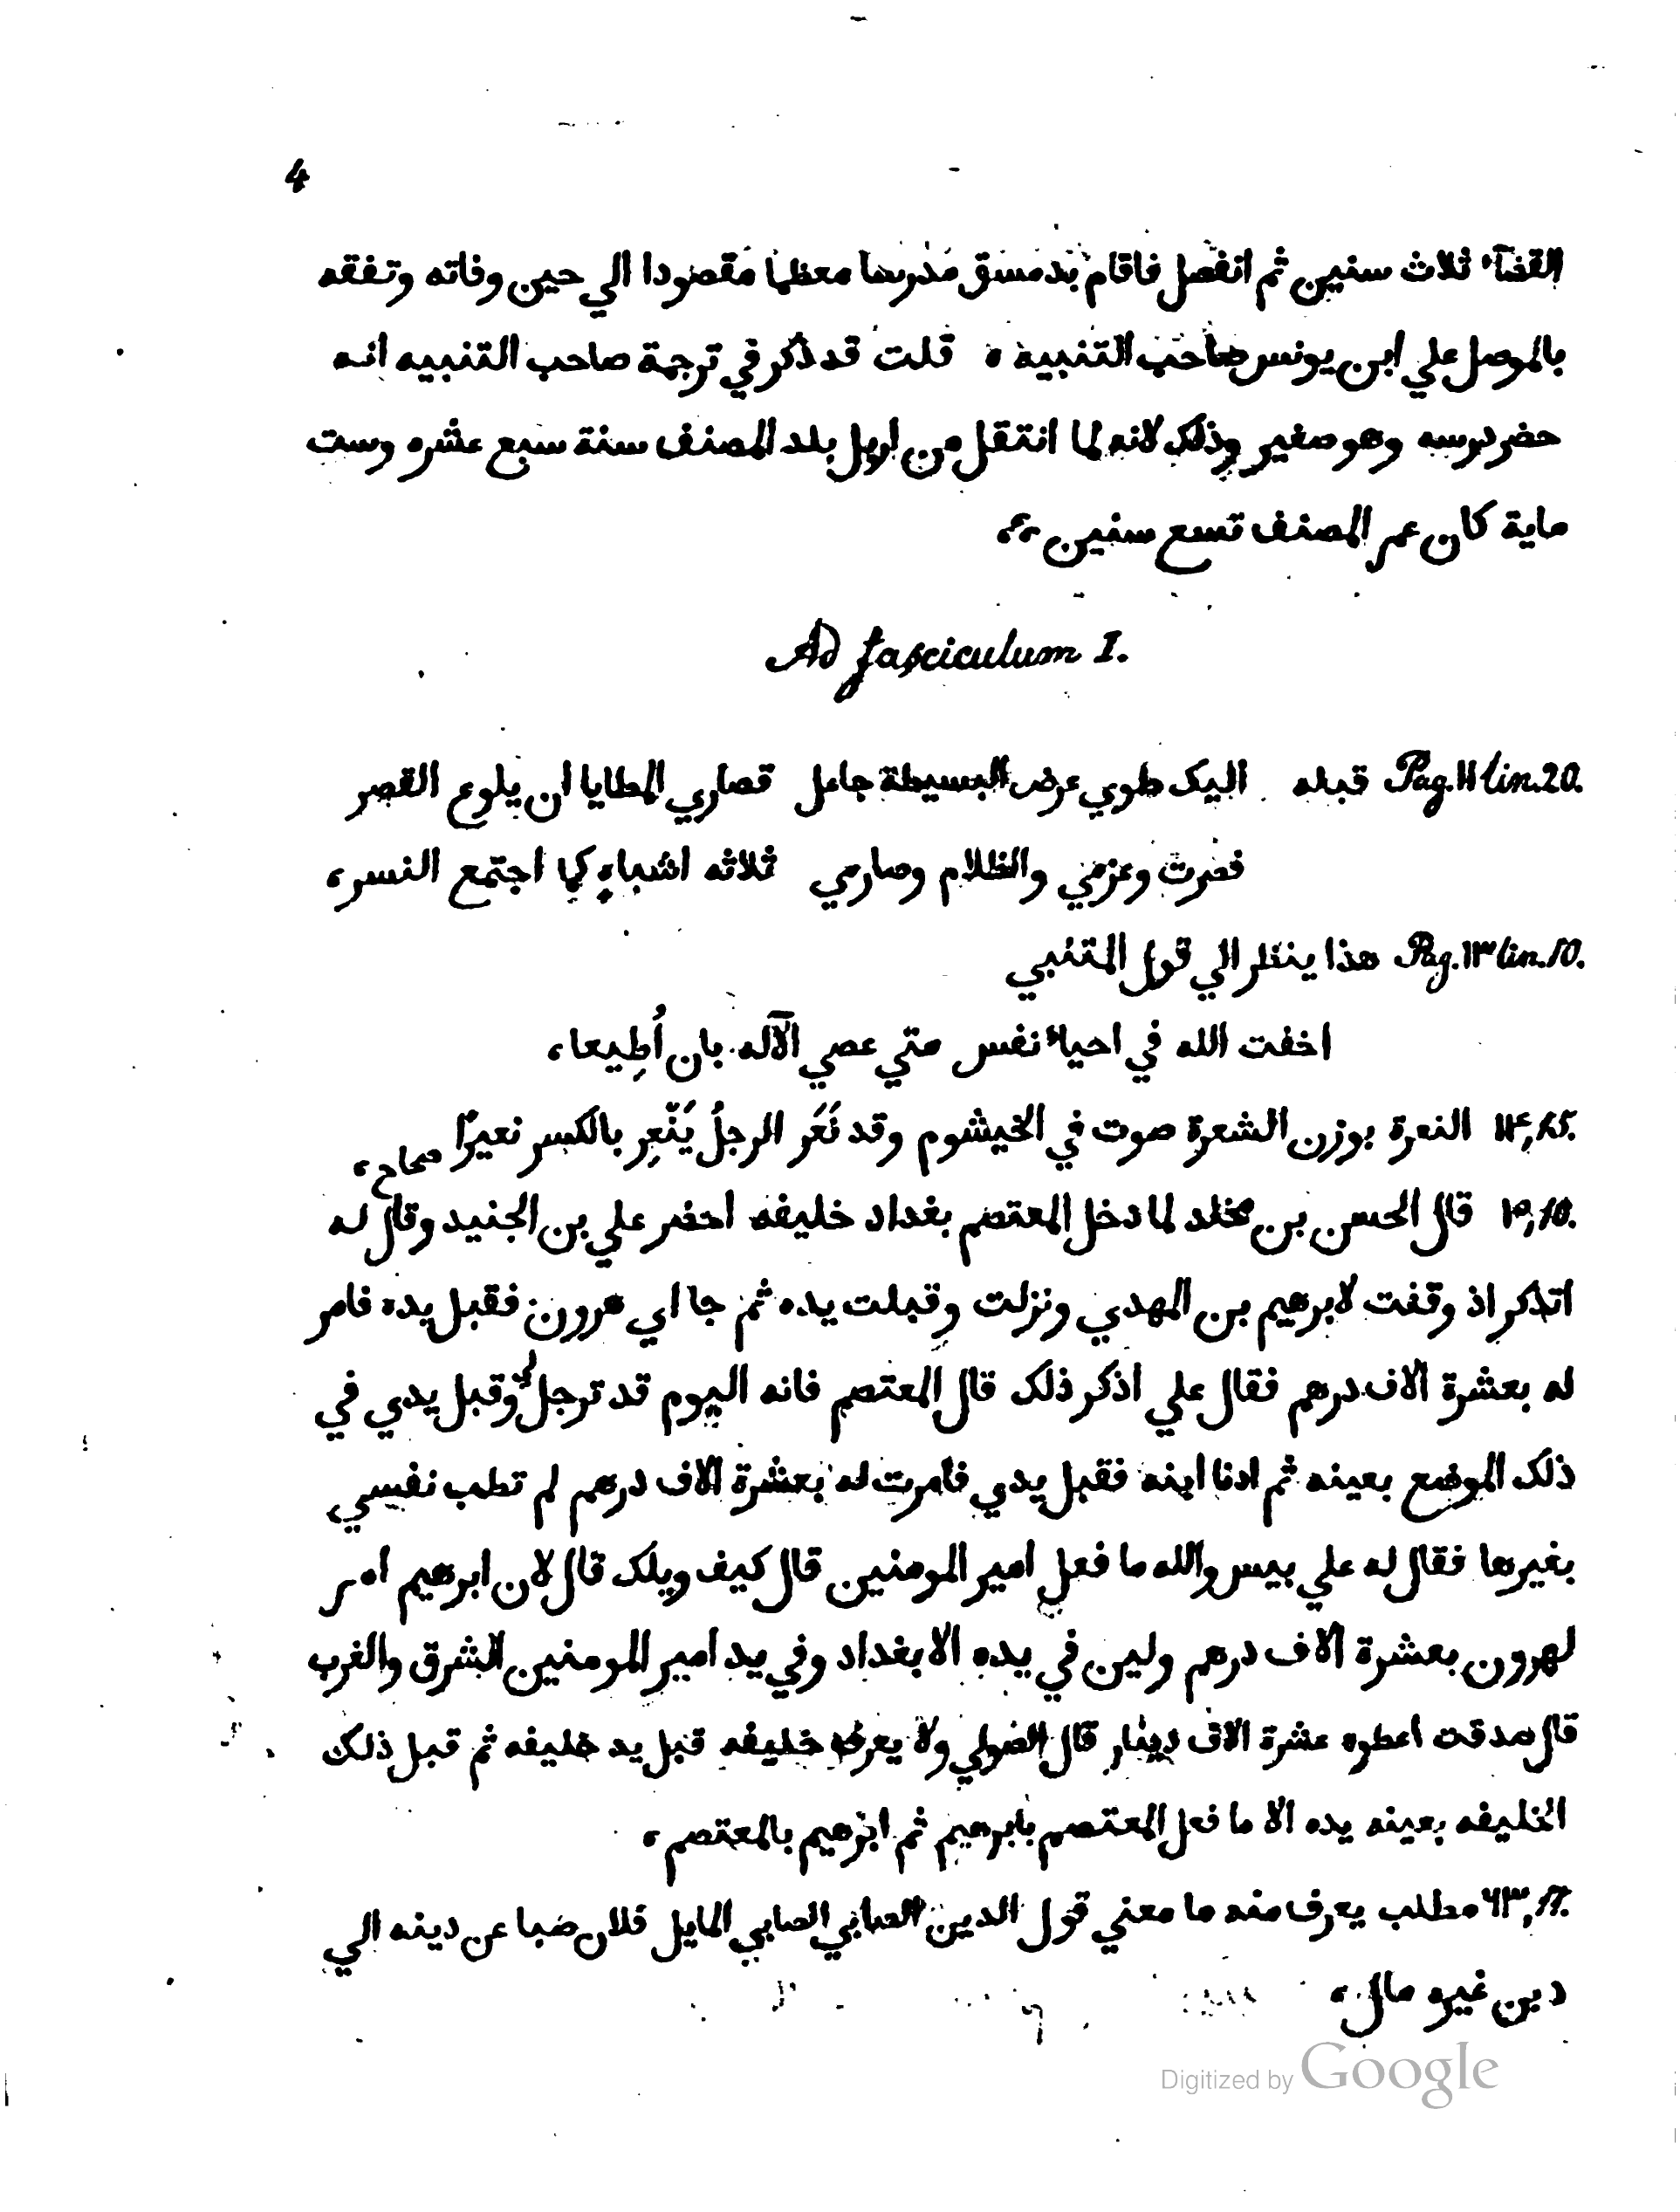 4
القضآء ثلاث سنين ثم انفصل فاقام بدمسق مدرسا معظما مقصودا الي حين وفاته وتفقه
بالموصل علي ابن يونس صاحب التنبيه ه قلت قد ذكر في ترجمة صاحب التنبيه انه
حضر درسه وهو صغير وذلك لانه لما انتقل من اربل بلد المصنف سنة سبع عشره وست
ماية كان عمر المصنف تسع سنين،،
Ad fasciculum I.
Pag. ١١ lin. 20. قبله اليك طوي عرض البسيطة جاعل قصاري المطايا ان يلوع القصر
فصرت وعزمي والظلام وصارمي ثلاثه اشباء كما اجتمع النسر،
Pag. ١٣ lin. 10. هذا ينظر الي قول المتنبي
اخفت الله في احياء نفس متي عصي الآله بان أُطِيعا،
١٤, 15. النعرة بوزن الشعرة صوت في الخيشوم وقد نَعَر الرجلُ يَنْعِر بالكسر نعيرًا صحاح،
١٥, 10. قال الحسن بن مخلد لما دخل المعتصم بغداد خليفه احضر علي بن الجنيد وقال له
اتذكر اذ وقفت لابرهيم بن المهدي ونزلت وقبلت يده ثم جا اي هرون فقبل يده فامر
له بعشرة الاف درهم فقال علي اذكر ذلك قال المعتصم فانه اليوم قد ترجل لي وقبل يدي في
ذلك الموضع بعينه ثم ادنا ابنه فقبل يدي فامرت له بعشرة الاف درهم لم تطب نفسي
بغيرها فقال له علي بيس والله ما فعل امير المومنين قال كيف ويلك قال لان ابرهيم امر
لهرون بعشرة الاف درهم ولين في يده الا بغداد وفي يد امير المومنين الشرق والغرب
قال صدقت اعطوه عشرة الاف دينار قال الصولي ولا يعرف خليفه قبل يد خليفه ثم قبل ذلك
الخليفه بعينه يده الا ما فعل المعتصم بابرهيم ثم ابرهيم بالمعتصم،
٦٣, 17. مطلب يعرف منه ما معني قول الدين الصابي الصابي المايل فلان ضبا عن دينه الي
دين غيره مال،
Digitized by Google